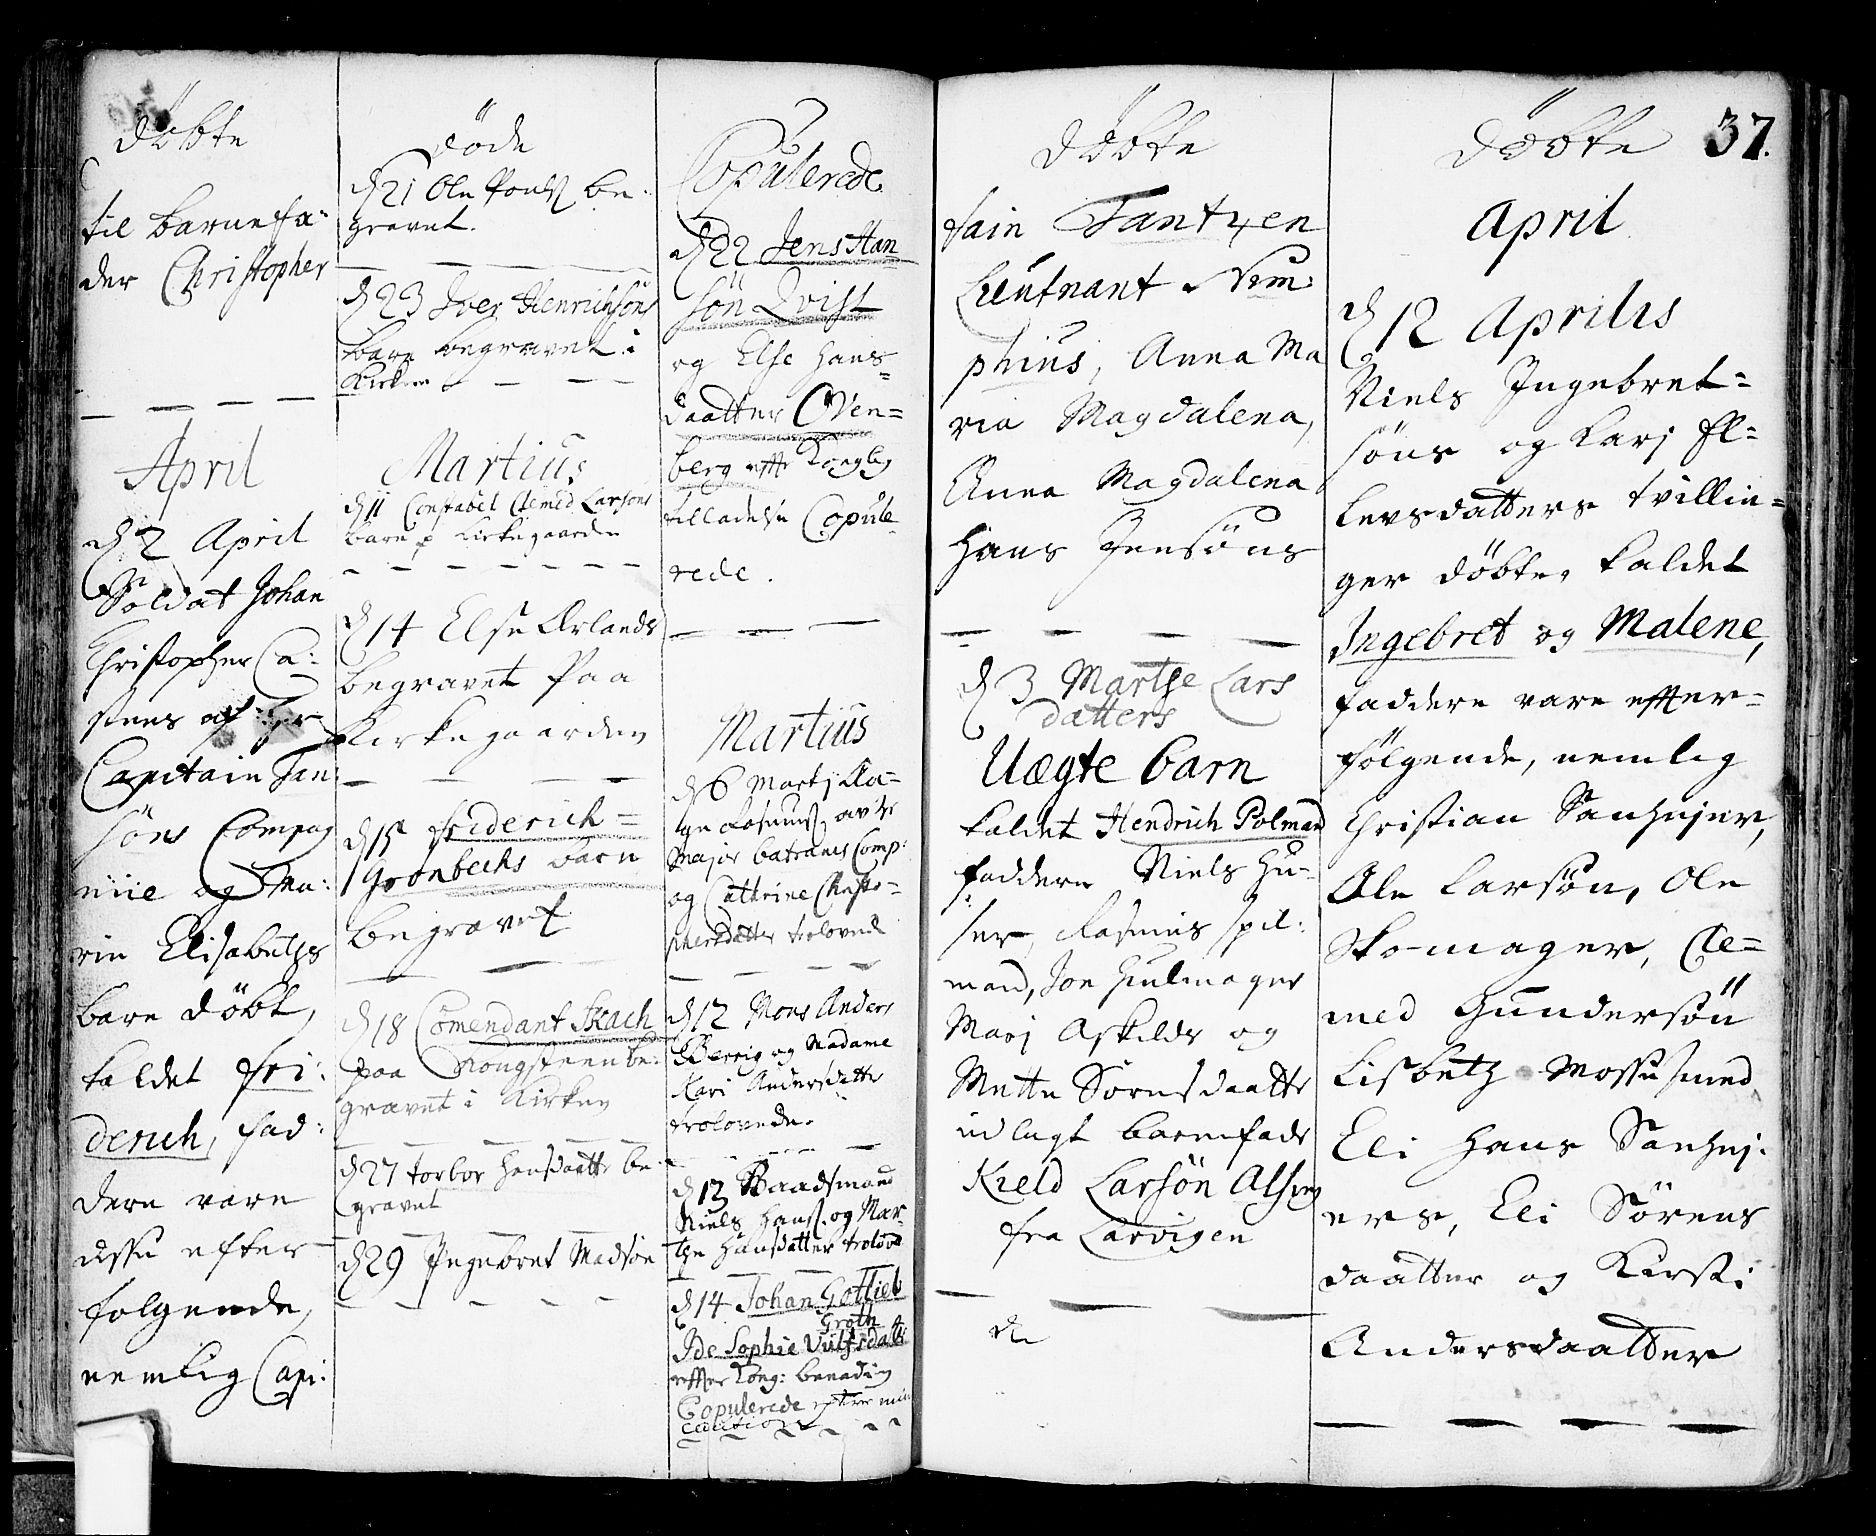 døbte
til barnefa-
der Christopher
April
d 2 April
Soldat Johan
Christopher Ca-
stens af Hr
Capitain Jan-
söns Compag
niie og Ma-
rin Elisabeths
barn döbt,
kaldet fri:
derich, fad:
dere vare
disse efter
folgende,
nemlig Capi:
døde
d 21 Ole Pouls be-
gravet.
d 23 Iver Henrichsöns
barn begravet i
Kirken
Martius
d 11 Constabel Clemed Larsöns
barn p Kirkegaarden
d 14 Else Ørlands
begravet Paa
Kirkegaarden
d 15 friderich=
Gronbechs barn
begravet
d 18 Comendant Skach
paa Kongsteen be:
gravet i Kirken
d 27 torbor Hansdaatter be-
gravet
d 29 Ingebret Madsön
Copulerede
d 22 Jens Han
sön Qvist
og Else Hans=
daatter Oven=
berg effter Konglig
tilladelse Copule
rede.
Martius
d 6 Martj Aa=
ge Rasmuss av
Major Catranes Comp:
og Cathrine Christo-
phersdatter trolovede
d 12 Mons Anders
Berrig og Madame
Kari Andersdatter
trolovede.
d 13 Baadsmand
Niels Hanss. og Mar-
the Hansdatter trolovd
d 14 Johan Gottlieb
Groth
Ide Sophie Vulfsdatt
effter Kong: benading
Copulerede
caution
Döbte
tain Tantzen
Lieutnant Nim
phius, Anna Ma
ria Magdalena,
Anna Magdalena
Hans Jensöns
d 3 Marthe Lars
datters
Uægte barn
kaldet Hendrich Polmand
faddere Niels Hu-
ser, Rasmus Spil:
mand, Jon Hiulmager
Marj Askilds og
Mette Sörensdaatter
udlagt barnefader
Kield Larsön Alsing
fra Larvigen
de
Døbte 37.
April
d 12 Aprilis
Niels Ingebret=
söns og Karj El=
levsdatters tvillin=
ger döbte, kaldet
Ingebret og Malene,
faddere vare effter=
fölgende, nemlig
Christian Sanhujer,
Ole Larsön, Ole
Skomager, Cle=
med Gundersön
Lisbeth Mossesmed
Eli Hans Sanhuj-
ers, Eli Sörens
daatter og Kirsti
Andersdaatter